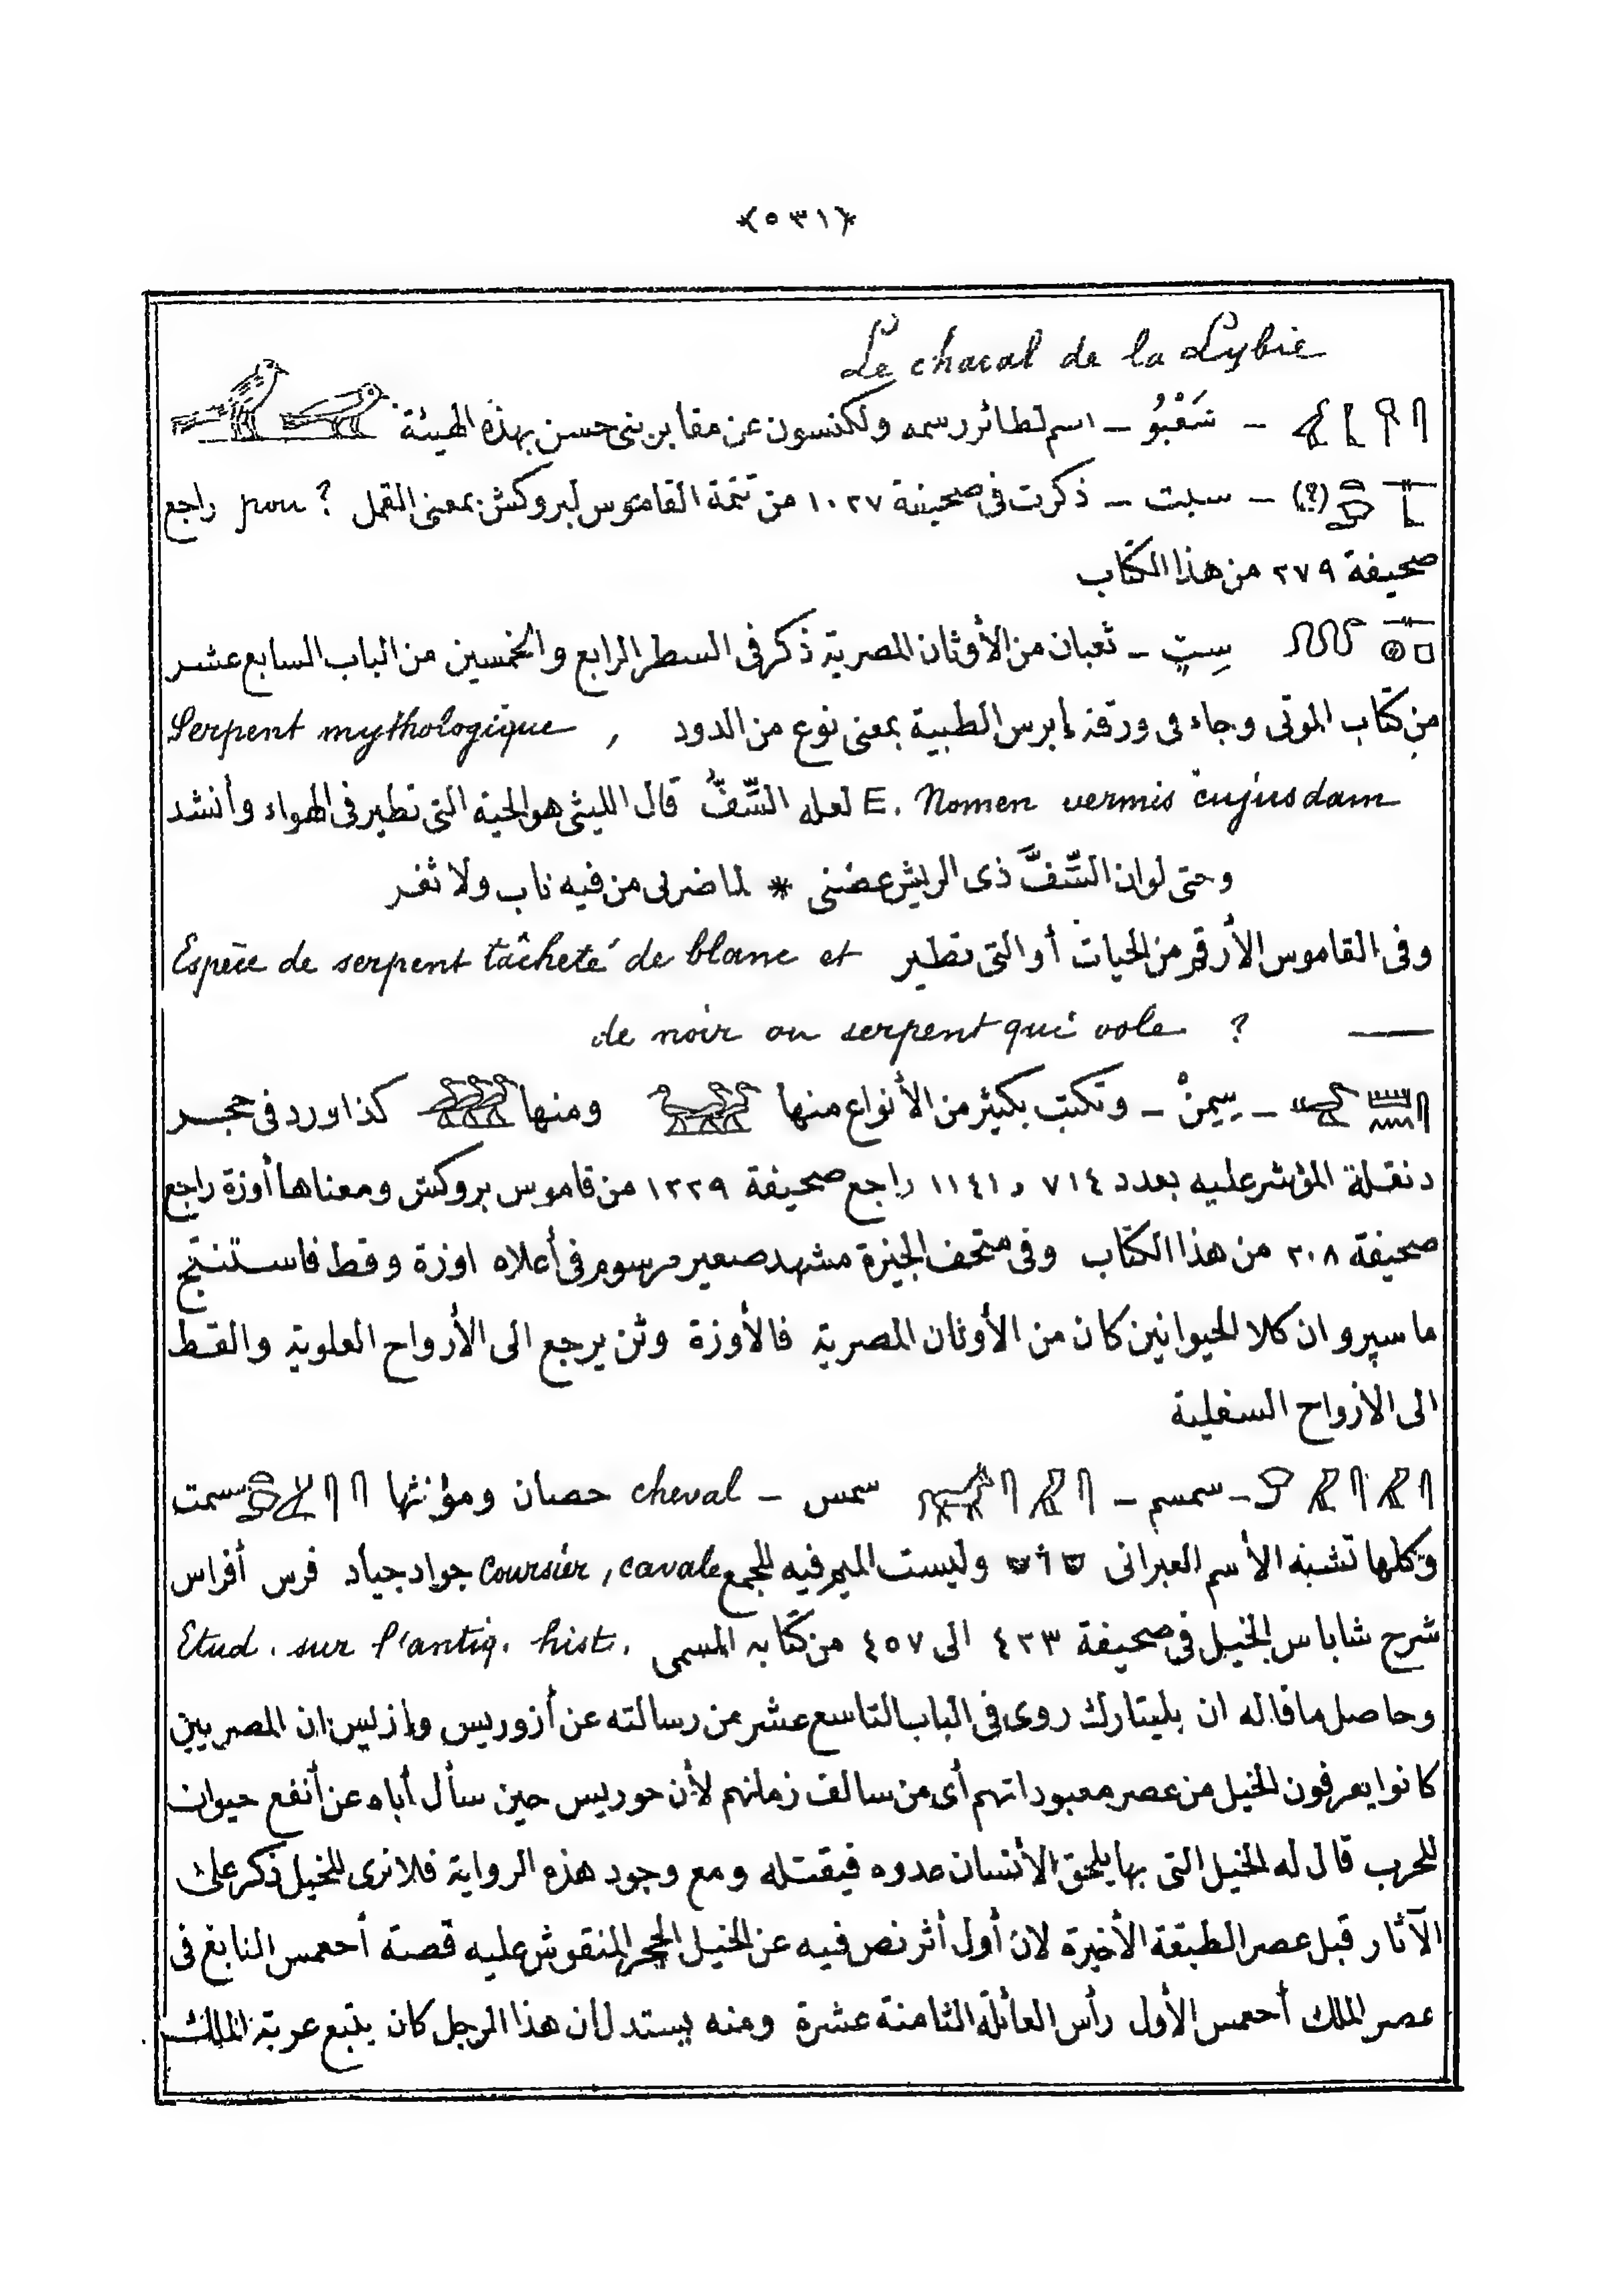 ﴿٥٣١﴾
Le chacal de la Lybie
– سَعْبُو – اسم لطائر رسمه ولكنسون عن مقابر بنى حسن بهذه الهيئة
(?) – سبت – ذكرت فى صحيفة ١٠٢٧ من تتمة القاموس لبروكش بمعنى القمل ? pou راجع
صحيفة ٢٧٩ من هذا الكتاب
سِپٍ – ثعبان من الأوثان المصرية ذكر فى السطر الرابع والخمسين من الباب السابع عشر
من كتاب الموتى وجاء فى ورقة إبرس الطبية بمعنى نوع من الدود , Serpent mythologique
E. Nomen vermis cujusdam لعله السِّفُّ قال الليثى هو الحية التى تطير فى الهواء وأنشد
وحتى لو ان السِّفَّ ذى الريش عضنى * لما ضرنى من فيه ناب ولا ثغر
وفى القاموس الأرقم من الحيات أو التى تطير Espèce de serpent tâcheté de blanc et
de noir ou serpent qui vole ?
– سِيمنْ – وتكتب بكيثر من الأنواع منها ومنها كذا ورد فى حجر
دنقلة المؤشر عليه بعدد ٧١٤ و ١١٤١ راجع صحيفة ١٢٢٩ من قاموس بروكش ومعناها أوزة راجع
صحيفة ٢٠٨ من هذا الكتاب وفى متحف الجيزة مشهد صغير مرسوم فى أعلاه اوزة وقط فاستنتج
ماسپرو ان كلا الحيوانين كان من الأوثان المصرية فالأوزة وثن يرجع الى الأرواح العلوية والقط
الى الأرواح السفلية
– سمسم – سمس – cheval حصان ومؤنثها سسمت
وكلها تشبه الأسم العبرانى وليست الميم فيه للجمع coursier, cavale جواد جياد فرس أفراس
شرح شاباس الخيل فى صحيفة ٤٢٣ الى ٤٥٧ من كتابه المسمى Etud. sur l'antiq. hist.
وحاصل ما قاله ان بليتارك روى فى الباب التاسع عشر من رسالته عن أزوريس وإزيس ان المصريين
كانوا يعرفون الخيل من عصر معبوداتهم أى من سالف زمانهم لأن حوريس حين سأل أباه عن أنفع حيوان
للحرب قال له الخيل التى بها يلحق الأنسان عدوه فيقتله ومع وجود هذه الرواية فلا نرى للخيل ذكر على
الآثار قبل عصر الطبقة الأخيرة لان أول أثر نص فيه عن الخيل الحجر المنقوش عليه قصة أحعمس النابغ فى
عصر الملك أحعمس الأول رأس العائلة الثامنة عشرة ومنه يستدل أن هذا الرجل كان يتبع عربة الملك